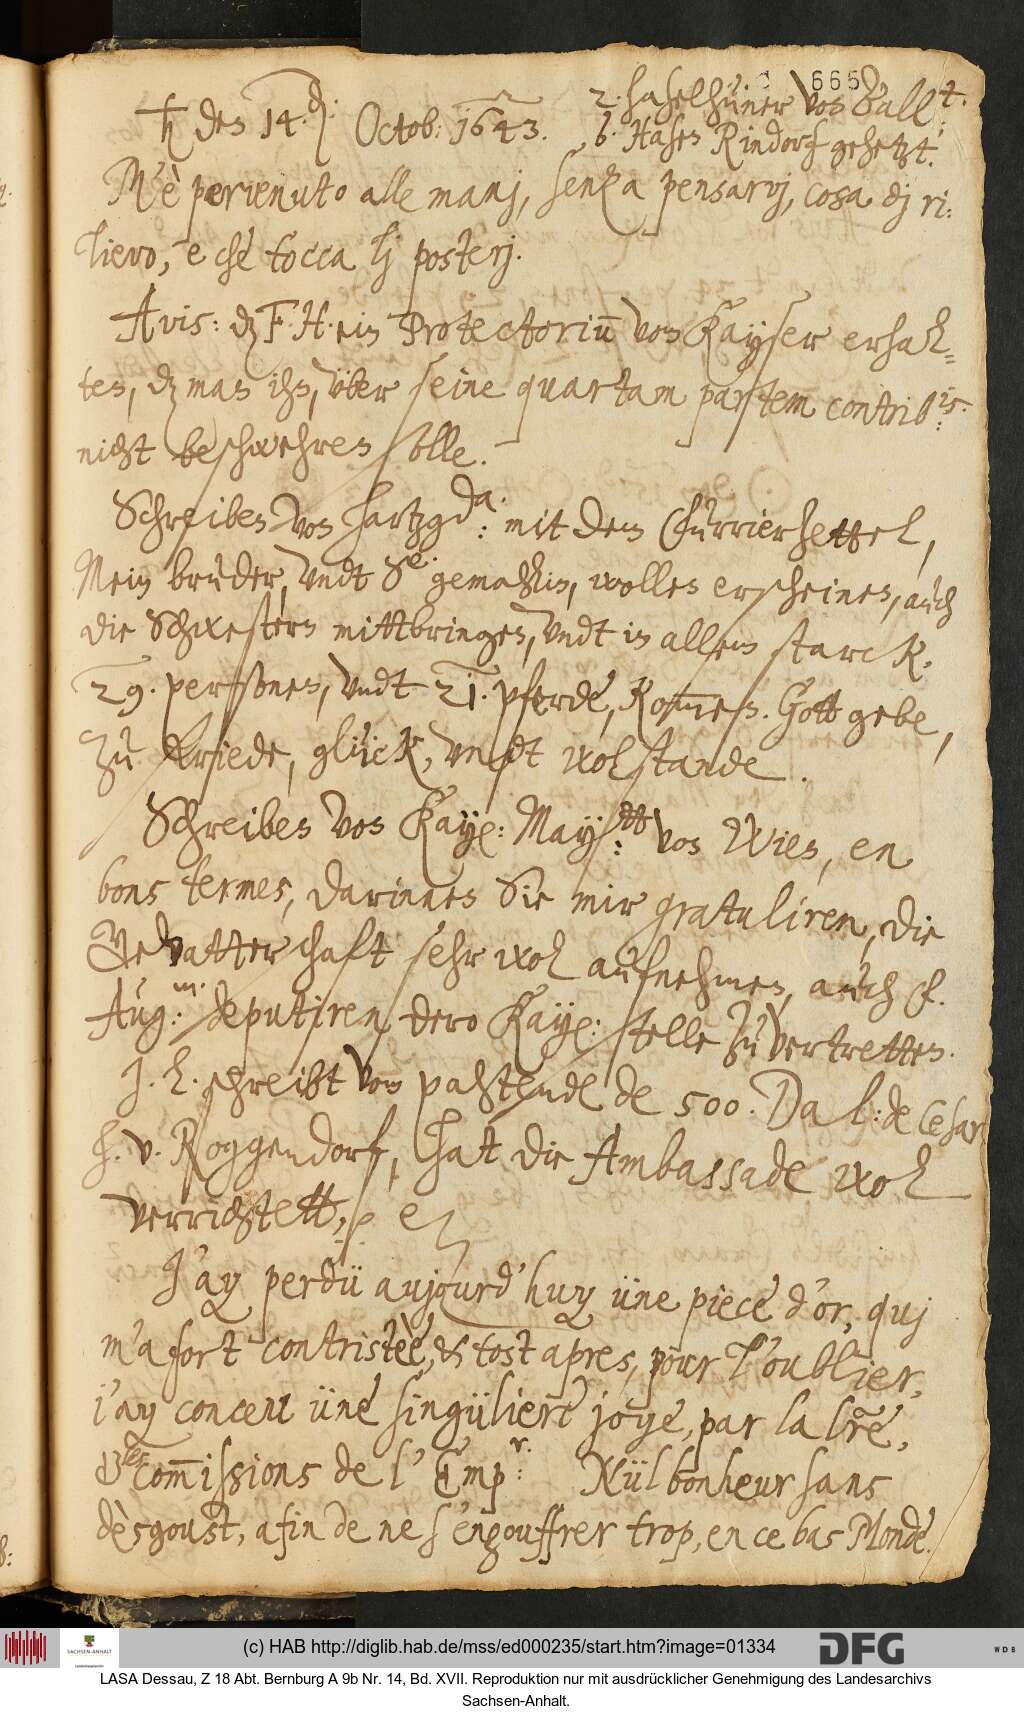 665
♄ den 14.d: Octob: 1643.
2. haselhüner von Ball:t.
6. Hasen Rindorf gehetzt.
M'è pervenuto alle manj, senza pensarvj, cosa dj ri:
lievo, e chè tocca lj posterj.
Avis: dz F. H. ein Protectoriū vom Kayser erhal=
ten, dz man ihn, über seine quartam partem contrib:is.
nicht beschwehren solle.
Schreiben von Hartzgd:a. mit dem Fürrierzettel,
Mein bruder, vndt Se. gemahlin, wollen erscheinen, auch
die Schwestern mittbringen, vndt in allem starck.
29. personen, vndt 21. pferde, Kom̄en. Gott gebe,
zu friede, glück, vndt wolstande.
Schreiben von Kaye: May:tt von Wien, en
bons termes, darinnen Sie mir gratuliren, die
Gevatterschaft sehr wol aufnehmen, auch f.
Aug:m. deputiren, dero Kaye: stelle zu vertretten.
J. L. schreibt vom paßtende de 500. Da l: de Cesar
H. v. Roggendorf, hat die Ambassade wol
verrichtett, p
J'ay perdü aujourd'huy üne piece d'or, quj
m'a fort contristèè, & tost apres, pour l'oublier,
j'ay conceu üne singüliere joye, par la lr̄e,
& les com̄issions de l'Emp:r. Nül bonheur sans
dèsgoust, afin de ne s'engouffrer trop, en ce bas Monde.
(c) HAB http://diglib.hab.de/mss/ed000235/start.htm?image=01334
SACHSEN-ANHALT
DFG
WDB
LASA Dessau, Z 18 Abt. Bernburg A 9b Nr. 14, Bd. XVII. Reproduktion nur mit ausdrücklicher Genehmigung des Landesarchivs
Sachsen-Anhalt.